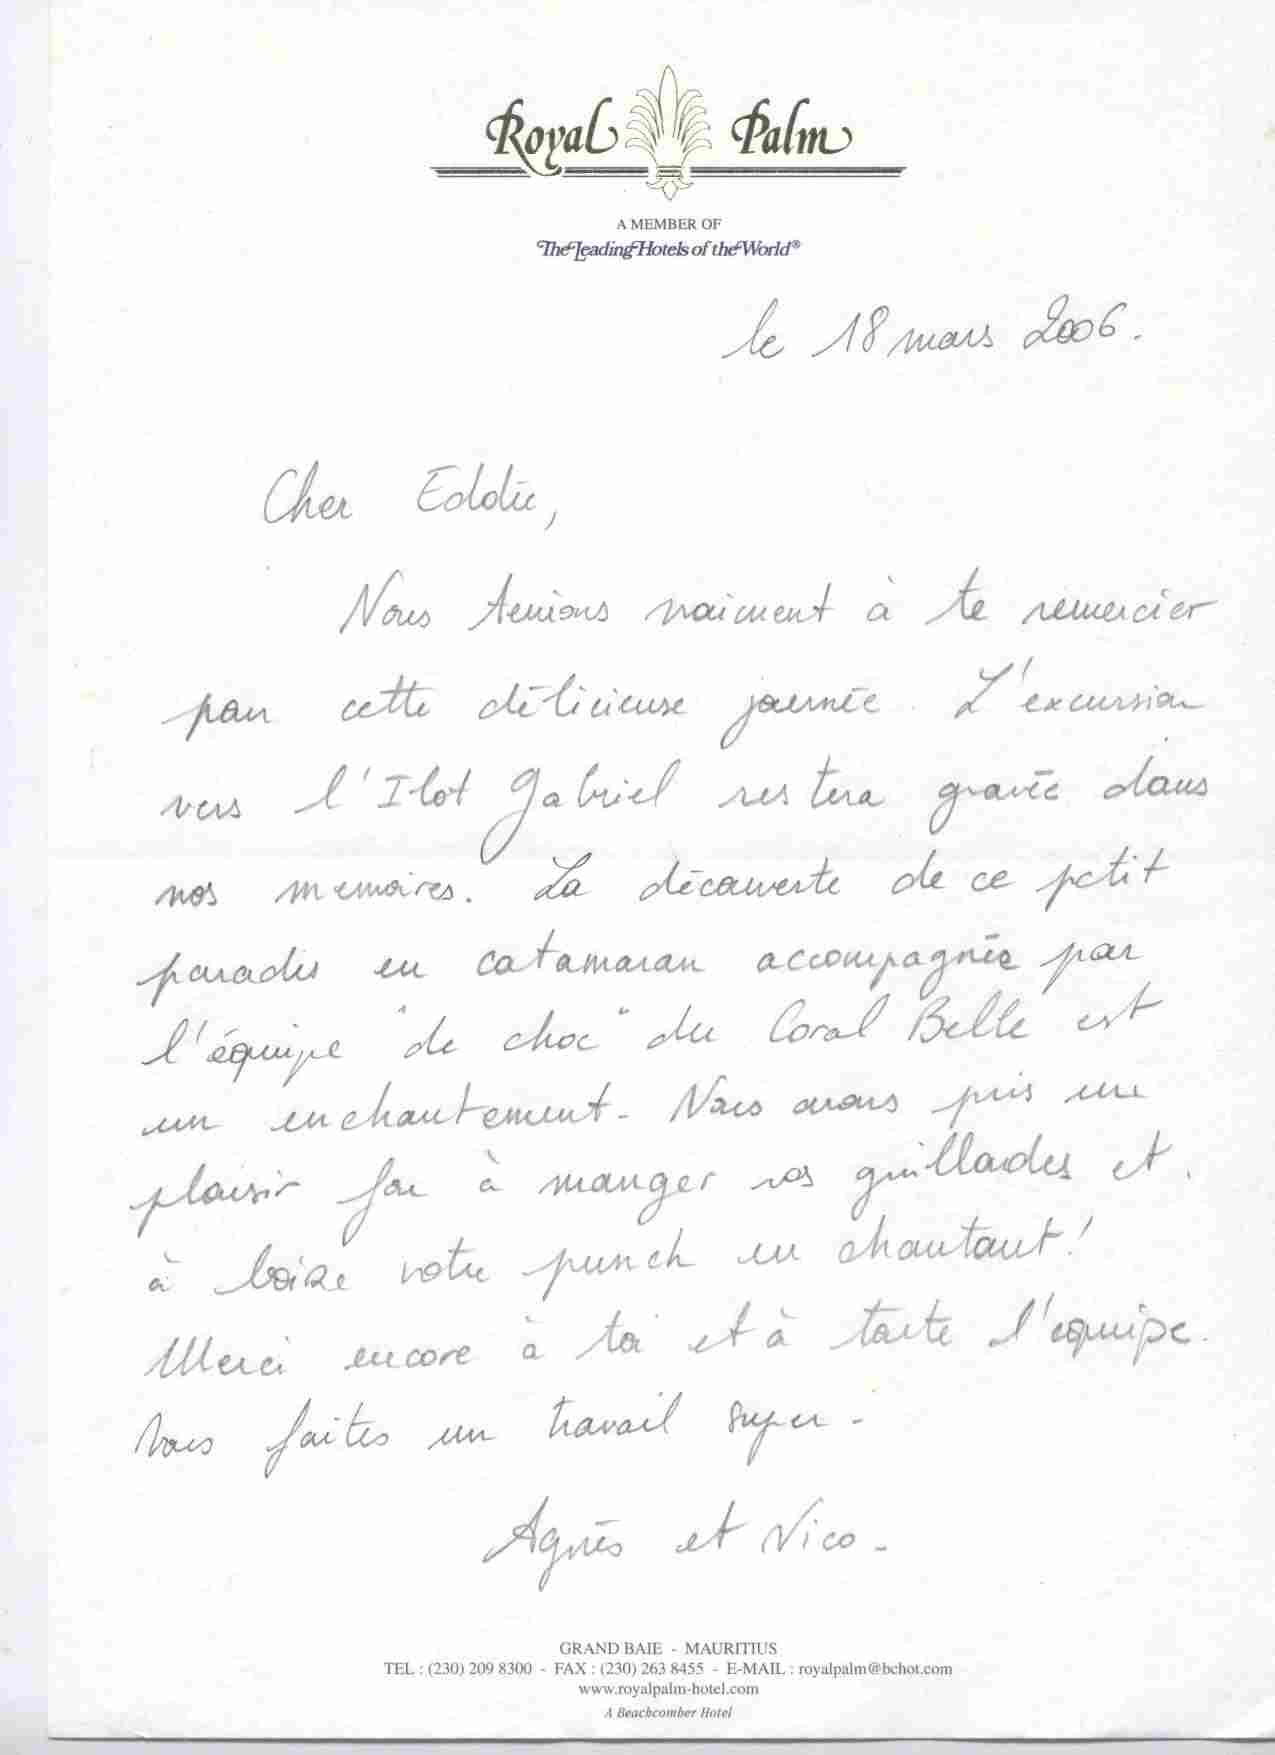 Royal Palm
A MEMBER OF
The Leading Hotels of the World®
le 18 mars 2006.
Cher Eddie,
Nous tenions vraiment à te remercier
pour cette délicieuse journée. L'excursion
vers l'Ilot Gabriel restera gravée dans
nos memoires. La découverte de ce petit
paradis en catamaran accompagnée par
l'équipe "de choc" du Coral Belle est
un enchantement. Nous avons pris un
plaisir fou à manger vos grillades et
à boire votre punch en chantant!
Merci encore à toi et à toute l'equipe.
Vous faites un travail super.
Agnès et Nico.
GRAND BAIE - MAURITIUS
TEL : (230) 209 8300 - FAX : (230) 263 8455 - E-MAIL : royalpalm@bchot.com
www.royalpalm-hotel.com
A Beachcomber Hotel